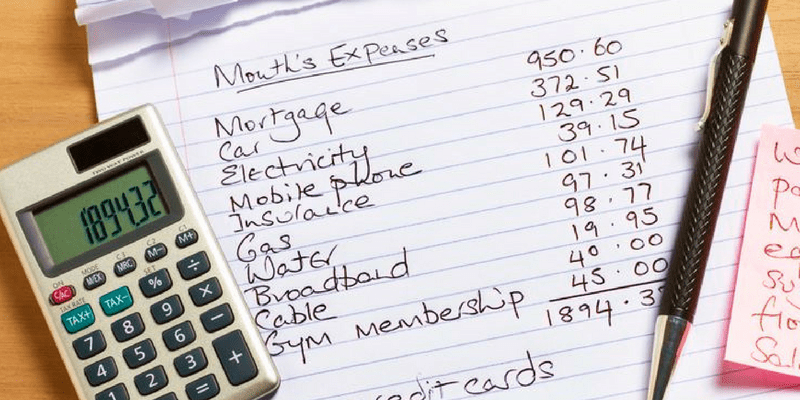 Month's Expenses
Mortgage 950.60
Car 372.51
Electricity 129.29
Mobile phone 39.15
Insurance 101.74
Gas 97.31
Water 98.77
Broadband 19.95
Cable 40.00
Gym Membership 45.00
1894.3
credit cards
TWO WAY POWER
1894.32
ON MODE C·I C·2 G1
C/AC M/EX MRC M− M+
TAX RATE SET
TAX+ TAX− % ÷
7 8 9 × −
4 5 6 +
1 2 3 =